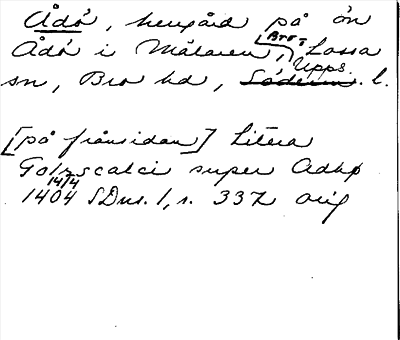 Ådö, herrgård på ön
Ådö i Mälaren, Lossa
Upps.
sn, Bro hd, Söderm. l.
[på frånsidan] Litera
Golzscalci super Adhø
14/4
1404 SDns. 1, s. 337 orig